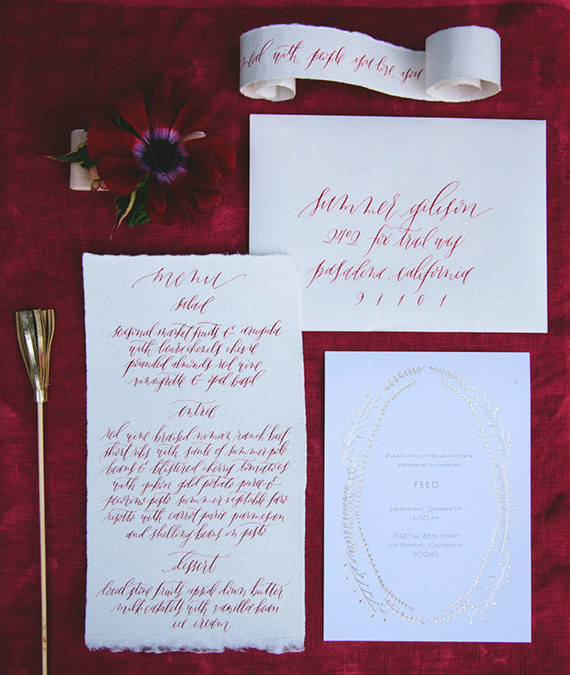 with people you love, you
summer gibson
2402 fox trail way
pasadena, california
91101
menu
salad
seasonal market fruits & arugula
with laura chenels chevre
pounded almonds red wine
vinaigrette & opal basil
entrée
red wine braised niman ranch beef
short ribs with saute of summer pole
beans & blistered cherry tomatoes
with yukon gold potato puree &
pecorino pesto summer vegetable faro
risotto with carrot puree parmesan
and shelling beans in pesto
dessert
local stone fruits upside down butter
milk cakelity with vanilla bean
ice cream
Please join us for an intimate
gathering to support
FEED
Wednesday, October 1st
6:30 PM
21427 W. 85th Street
Los Angeles, California
90045